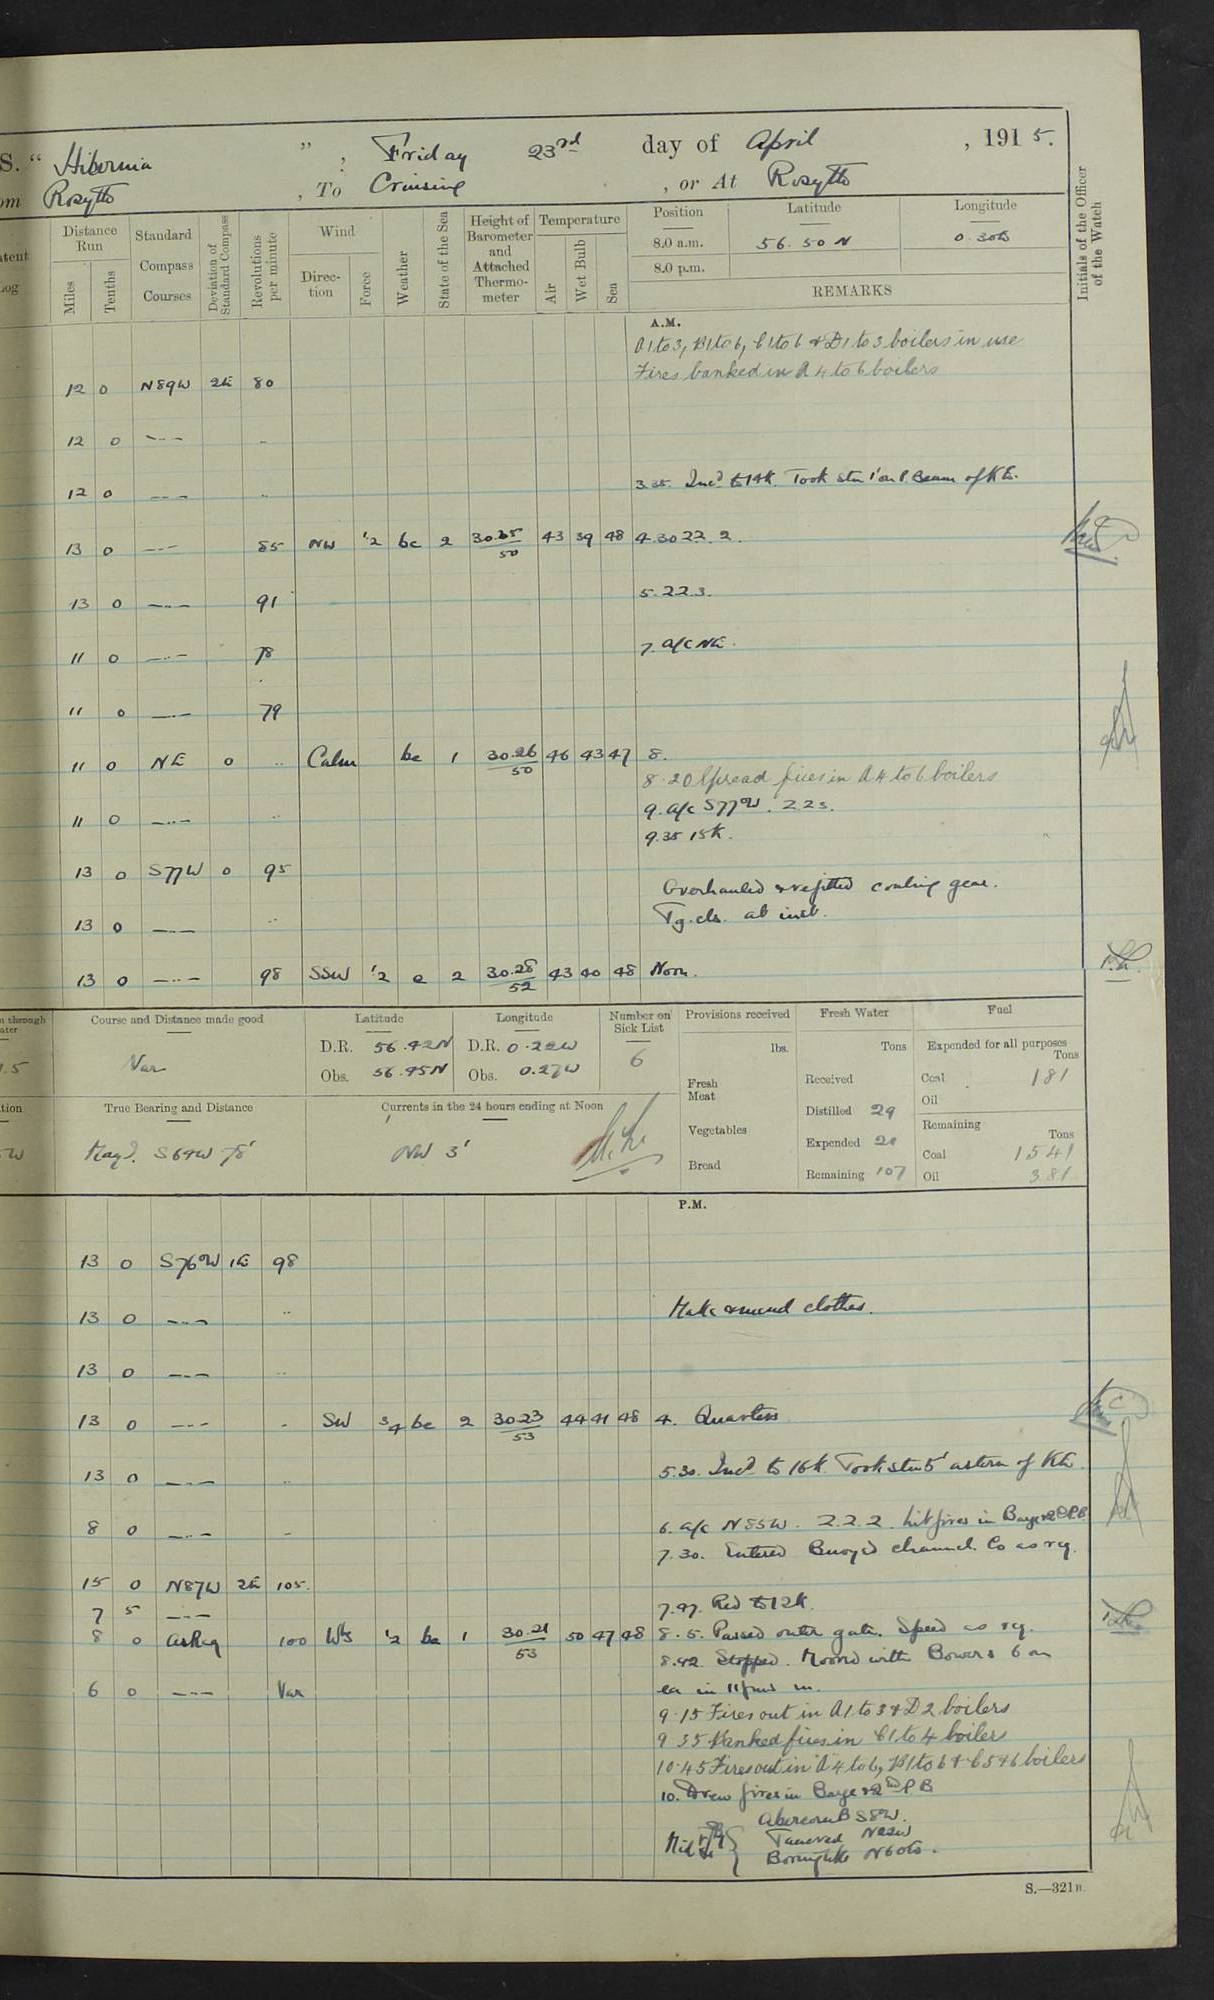 S. "Hibernia", Friday 23rd day of April, 1915.
om Rosyth, To Cruising, or At Rosyth
Initials of the Officer of the Watch
atent Log
Distance Run
Miles
Tenths
Standard Compass Courses
Deviation of Standard Compass
Revolutions per minute
Wind
Direction
Force
Weather
State of the Sea
Height of Barometer and Attached Thermometer
Temperature
Air
Wet Bulb
Sea
Position Latitude Longitude
8.0 a.m. 56.50 N
8.0 p.m.
REMARKS
A.M.
A1 to 3, B1 to 6, C1 to 6 & D1 to 3 boilers in use
12 0 N89W 2E 80 Fires banked in A 4 to 6 boilers
12 0 —..— ..
12 0 —..— .. 3.35. Inc'd to 14k. Took stn 1' on P. Beam of K.E.
13 0 —..— 85 NW 1/2 bc 2 30.25/50 43 39 48 4. 30 22.2.
13 0 —..— 91 5. 22.3.
11 0 —..— 78 7. a/c NE.
11 0 —..— 79
11 0 NE 0 .. Calm bc 1 30.26/50 46 43 47 8.
8.20 Spread fires in A 4 to 6 boilers
11 0 —..— .. 9. a/c S77W. 22s.
9.35 15k.
13 0 S77W 0 95
Overhauled & refitted coaling gear.
13 0 —..— .. Tg. cls. at inst.
13 0 —..— 98 SSW 1/2 c 2 30.28/52 43 40 48 Noon.
n through ater
Course and Distance made good
Latitude
Longitude
Number on Sick List
Provisions received
Fresh Water
Fuel
1.5 Var
D.R. 56.42N D.R. 0.22W 6
Obs. 56.45N Obs. 0.27W
lbs.
Fresh Meat
Vegetables
Bread
Tons
Received
Distilled 29
Expended
Remaining 107
Expended for all purposes
Tons
Coal 181
Oil
Remaining
Tons
Coal 1541
Oil 381
tion
True Bearing and Distance
Currents in the 24 hours ending at Noon
W May I. S64W 78' NW 3'
P.M.
13 0 S76W 1E 98
13 0 —..— .. Make & mend clothes.
13 0 —..— ..
13 0 —..— .. SW 3/4 bc 2 30.23/53 44 41 48 4. Quarters
13 0 —..— .. 5.30. Inc'd to 16k. Took stn 5' astern of K.E.
8 0 —..— .. 6. a/c N85W. 2.2.2. Lit fires in Barge & 2nd P.B.
7.30. Entered Buoyed channel. Co as rq.
15 0 N87W 2E 105.
7 5 —..— 7.47. Red to 12k.
8 0 as Req 100 Wly 1/2 bc 1 30.21/53 50 47 48 8.5. Passed outer gate. Speed as rq.
8.42. Stopped. Moored with Bowers 6 on
6 0 —..— Var ea in 11 fms m.
9.15 Fires out in A1 to 3 & D2 boilers
9.35 Banked fires in C1 to 4 boilers
10.45 Fires out in A 4 to 6, B1 to 6 & C5 & 6 boilers
10. Drew fires in Barge & 2nd P.B
Abercorn B S8W.
Mid Tancred N22W
Boroughts N60E.
S.—321B.